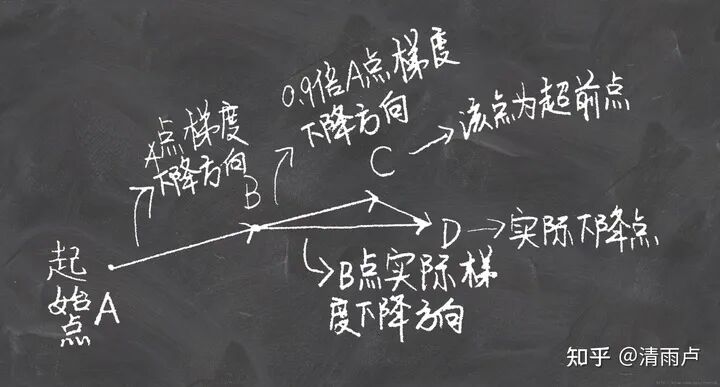 A点梯度
下降方向
0.9倍A点梯度
下降方向
B
C
该点为超前点
起
始
点
A
D
实际下降点
B点实际梯
度下降方向
知乎 @清雨卢